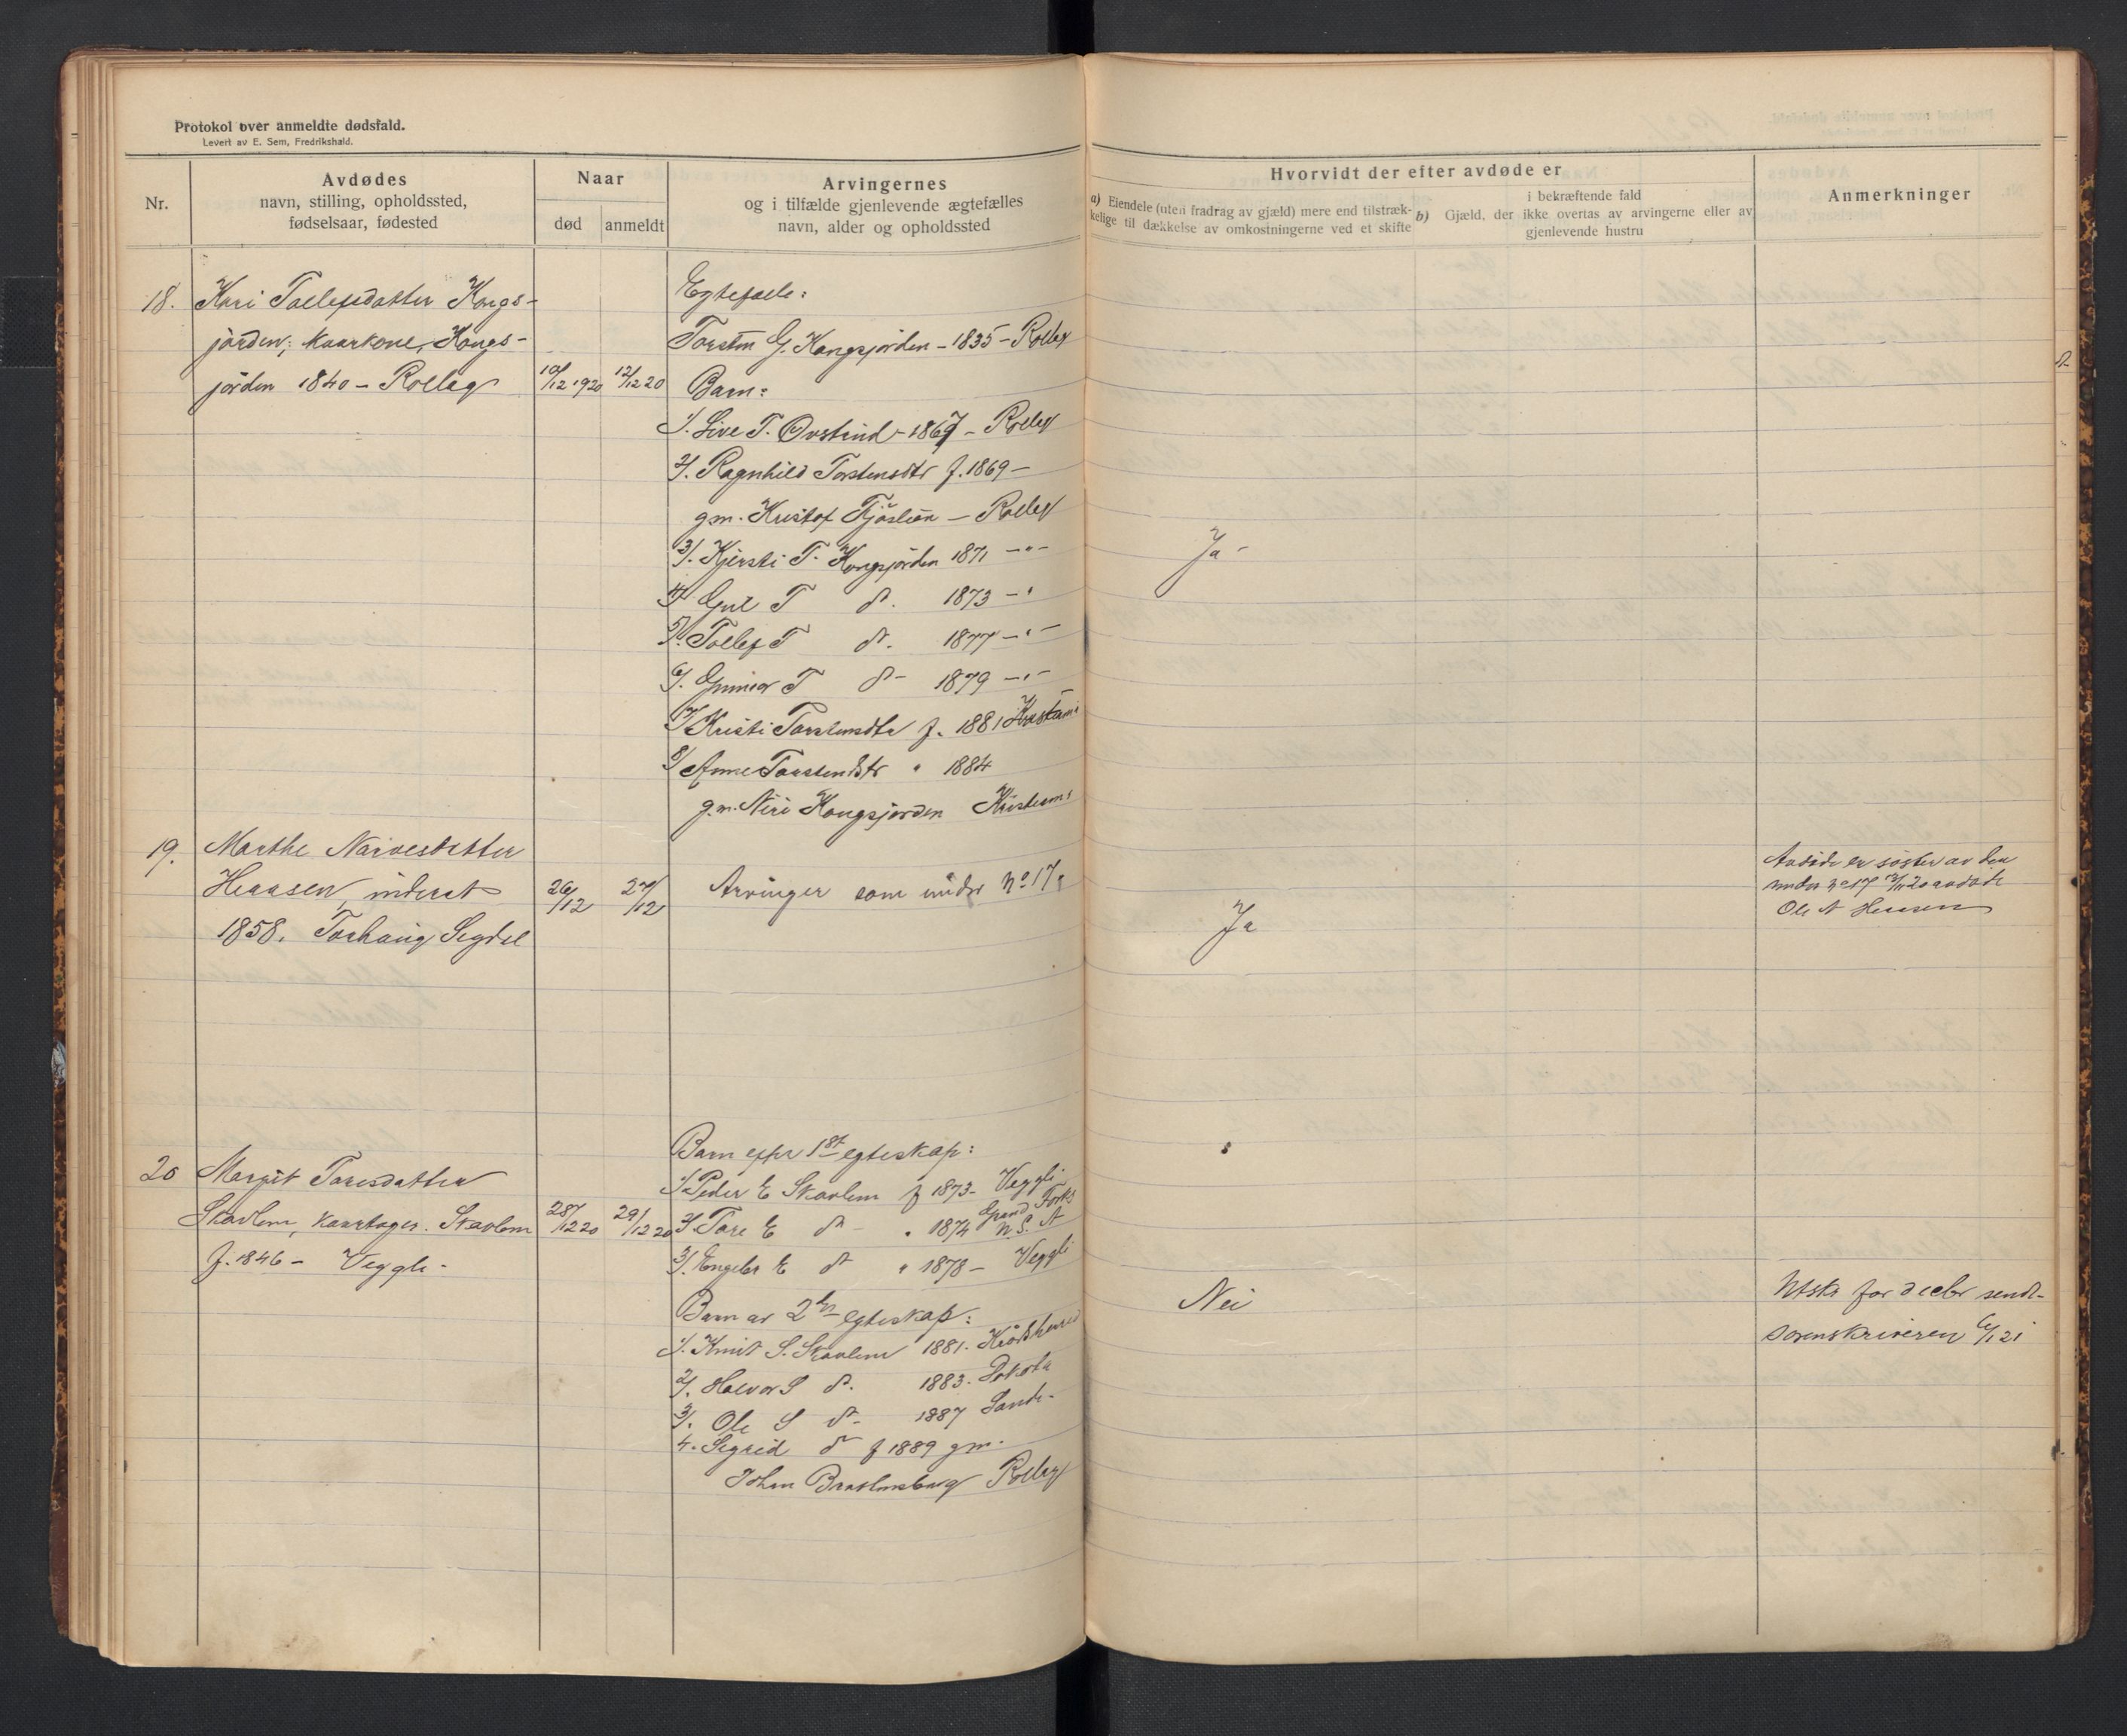 Protokol over anmeldte dødsfald.
Levert av E. Sem, Fredrikshald.
Nr.
Avdødes
navn, stilling, opholdssted,
fødselsaar, fødested
Naar
død
anmeldt
Arvingernes
og i tilfælde gjenlevende ægtefælles
navn, alder og opholdssted
Hvorvidt der efter avdøde er
a) Eiendele (uten fradrag av gjæld) mere end tilstræk-
kelige til dækkelse av omkostningerne ved et skifte
i bekræftende fald
b) Gjæld, der ikke overtas av arvingerne eller av
gjenlevende hustru
Anmerkninger
18. Kari Tollefsdatter Kongs-
jorden; kaarkone, Kongs-
jorden 1840 - Rollag
10/12 1920
12/12 20
Egtefæle:
Torsten G. Kongsjorden - 1835 - Rollag
Barn:
1/. Live T. Ovstrud - 1867 - Rollag
2/. Ragnhild Torstensdtr f. 1869 -
gm. Kristof - Rollag
3/. Kjersti T. Kongsjorden 1871 -"-
4/ Gul T do. 1873 -"
5/. Tollef T do. 1877 -"-
6/. Gunnar T do - 1879 -"-
7/ Kristi Torstensdtr f. 1881
8/ Anne Torstensdtr " 1884
g.m. Niri Kongsjorden
Ja -
19. Marthe Narvesdatter
Henasen, inderst
1858. Torhaug Sigdal
26/12
27/12
Arvinger som under No 17.
Ja
Avdøde er søster av den
under No 17 avdøde
Ole N Henasen
20 Margit Toresdatter
Skavlem, kaartager. Skavlem
f. 1846 - Veggli -
28/12 20
29/12 20
Barn efter 1ste egteskap:
1/ Peder E Skavlem f 1873 - Veggli
2/. Tore E do - " 1874 Grand Forks
N. S. A
3/. Engebr E do " 1878 - Veggli
Barn av 2det egteskap:
1/. Knut S. Skavlem 1881. Krødsherred
2/. Halvor S do. 1883. Dakota
3/. Ole S do - 1887 Sande -
4. Sigrid do f 1889 gm.
Johan Rollag
Nei
Utskr for decbr sendt
sorenskriveren 6/1 21